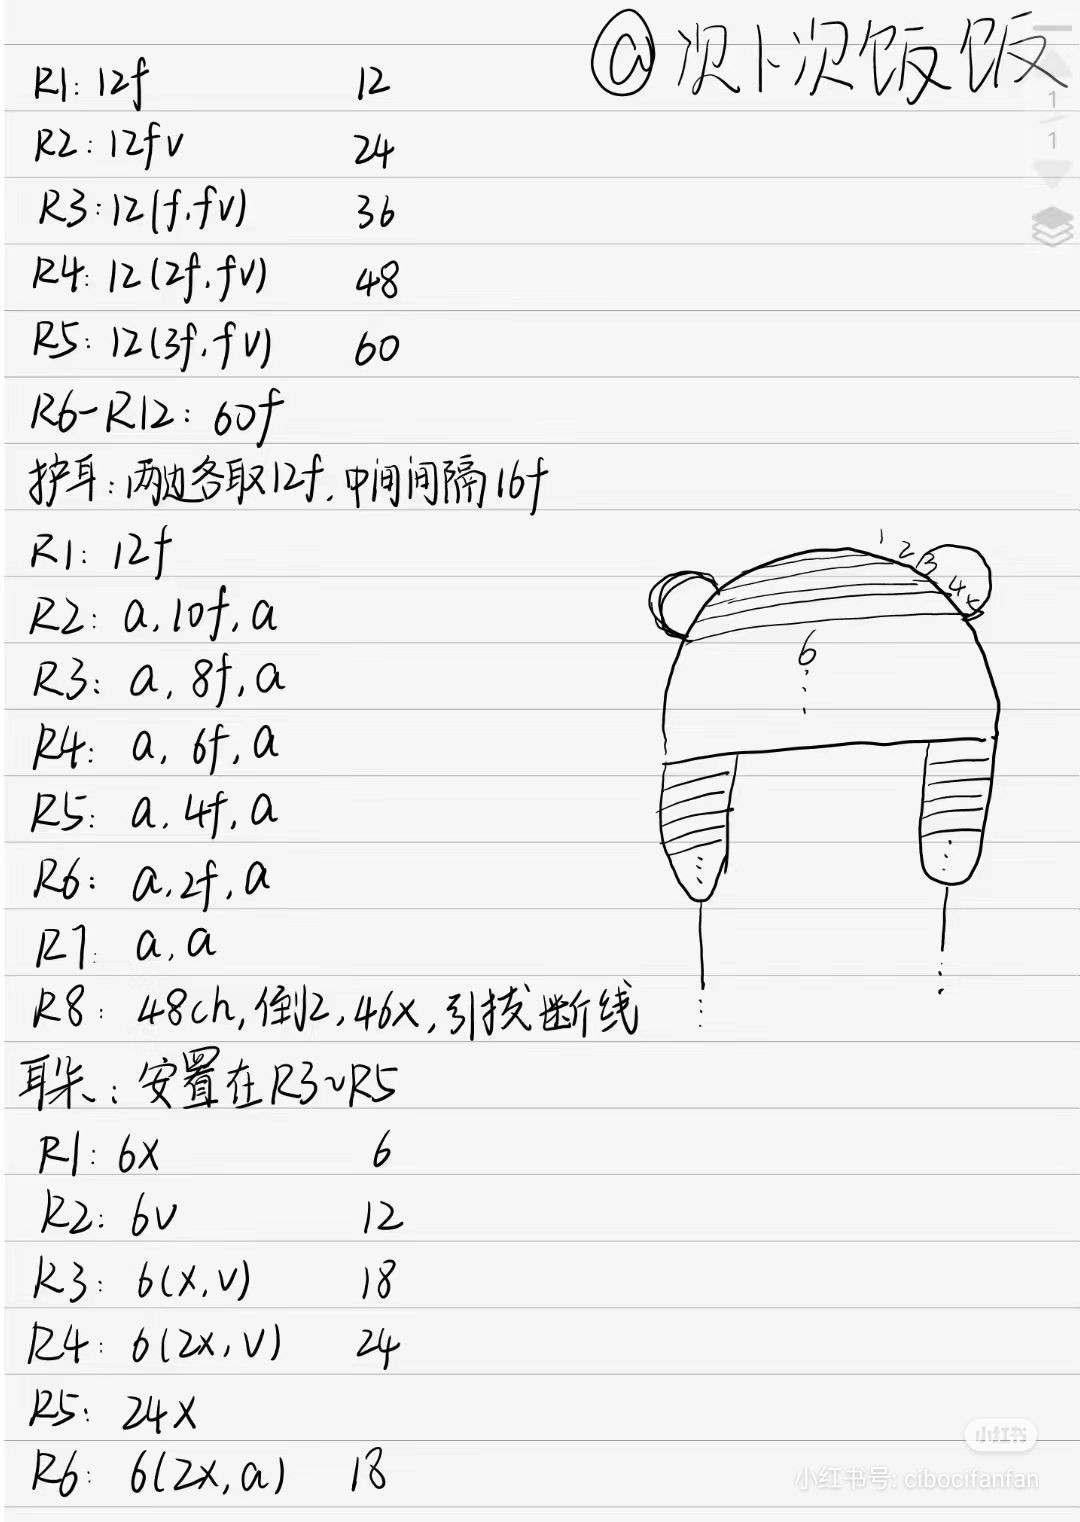 @次卜次饭饭
R1: 12f 12
R2: 12fv 24
R3: 12(f.fv) 36
R4: 12(2f.fv) 48
R5: 12(3f.fv) 60
R6-R12: 60f
护耳: 两边各取12f.中间间隔16f
R1: 12f
R2: a.10f.a
R3: a.8f.a
R4: a.6f.a
R5: a.4f.a
R6: a.2f.a
R7: a.a
R8: 48ch,倒2,46x,引拔断线
耳朵: 安置在R3~R5
R1: 6x 6
R2: 6v 12
R3: 6(x.v) 18
R4: 6(2x,v) 24
R5: 24x
R6: 6(2x,a) 18
1
1
1 2 3 4
6
小红书
小红书号: cibocifanfan